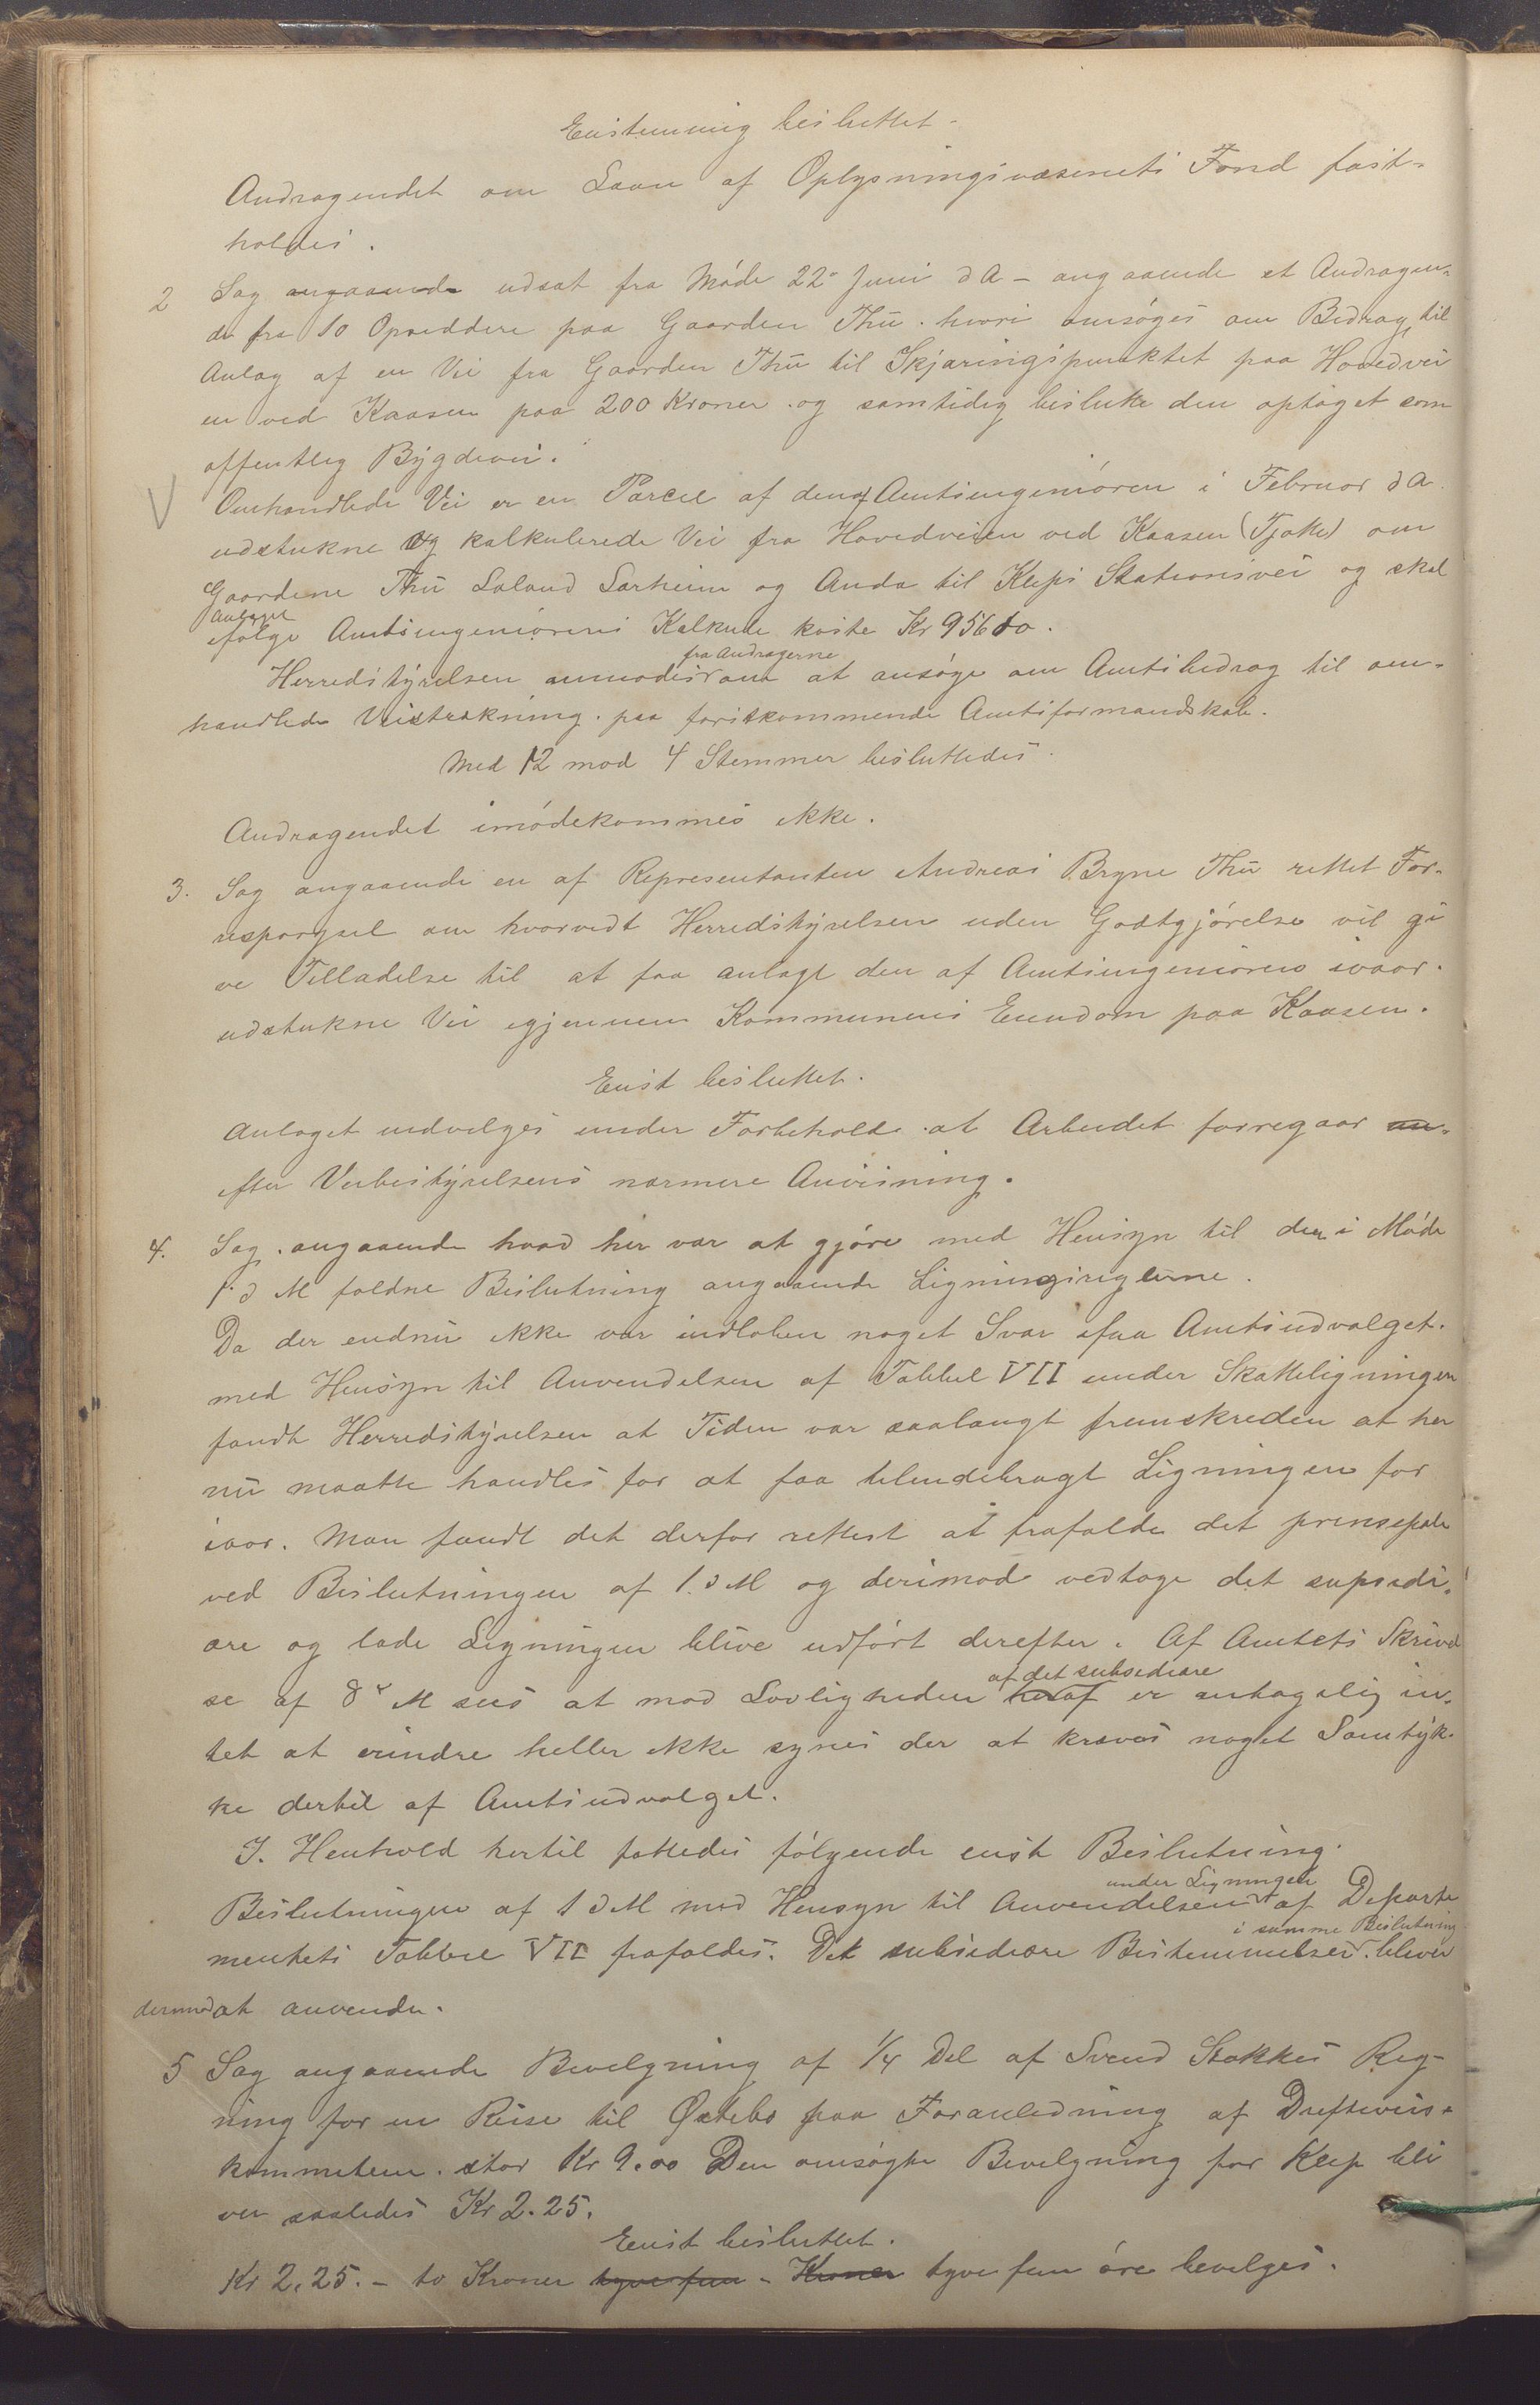 Enstemmig besluttet.
Andragendet om Laan af Oplysningsvæsenets Fond fast-
holdes.
2 Sag angaaende udsat fra Møde 22de Juni d A - angaaende et Andragen-
de fra 10 Opsiddere paa Gaarden Thu. hvori ansøges om Bidrag til
Anlæg af en Vei fra Gaarden Thu til Skjæringspunktet paa Hovedvei
en ved Kaasen paa 200 Kroner. og samtidig beslutte den optaget som
offentlig Bygdevei.
V Omhandlede Vei er en Parcel af den af Amtsingeniøren i Februar d A.
udstukne og kalkulerede Vei fra Hovedveien ved Kaasen (Tjøtta) om
Gaardene Thu Laland Særheim og Anda til Kleps Stationsvei og skal
Anlæget
ifølge Amtsingeniørens Kalkule koste Kr 95600.
fra Andragerne
Herredstyrelsen anmodes om at ansøge om Amtsbidrag til om-
handlede Veistrækning. paa førstkommende Amtsformandskab.
Med 12 mod 4 Stemmer besluttedes.
Andragendet imødekommes ikke.
3. Sag angaaende en af Representanten Andreas Bryne Thu rettet For-
espørgsel om hvorvidt Herredstyrelsen uden Godtgjørelse vil gi
ve Tilladelse til at faa anlagt den af Amtsingeniøren ivaar.
udstukne Vei igjennem Kommunens Eiendom paa Kaasen.
Enst besluttet.
Anlæget indvilges under Forbehold. at Arbeidet foregaar an-
efter Veibestyrelsens nærmere Anvisning.
4. Sag. angaaende hvad her var at gjøre med Hensyn til den i Møde
1. d M faldne Beslutning angaaende Ligningsreglerne.
Da der endnu ikke var indløben noget Svar ifra Amtsudvalget.
med Hensyn til Anvendelsen af Tabbel VII under Skatteligningen
fandt Herredstyrelsen at Tiden var saalangt fremskreden at her
nu maatte handles for at faa tilendebragt Ligningen for
iaar. Man fandt det derfor rettest at frafalde det prinsepale
ved Beslutningen af 1. d M og derimod vedtage det supsidi-
ære og lade Ligningen blive udført derefter. Af Amtets Skrivel
af det subsediære
se af 8de M sees at mod Lovligheden heraf er antagelig in-
tet at erindre heller ikke synes der at kræves noget Samtyk-
ke dertil af Amtsudvalget.
I. Henhold hertil fattedes følgende enst Beslutning.
under Ligningen
Beslutningen af 1 d M med Hensyn til Anvendelsen af Departe
i samme Beslutning
mentets Tabbel VII frafaldes. Det subsediære Bestemmelser. bliver
dermed at anvende.
5 Sag angaaende Bevilgning af 1/4 Del af Svend Stokkes Reg-
ning for en Reise til Østebø paa Foranledning af Drifteveis-
kommiteen. stor Kr 9.00 Den ansøgte Bevilgning for Klep bli
ver saaledes Kr 2.25.
Enst besluttet.
Kr 2,25. - to Kroner tyve fem - Kroner tyve fem øre bevilges.